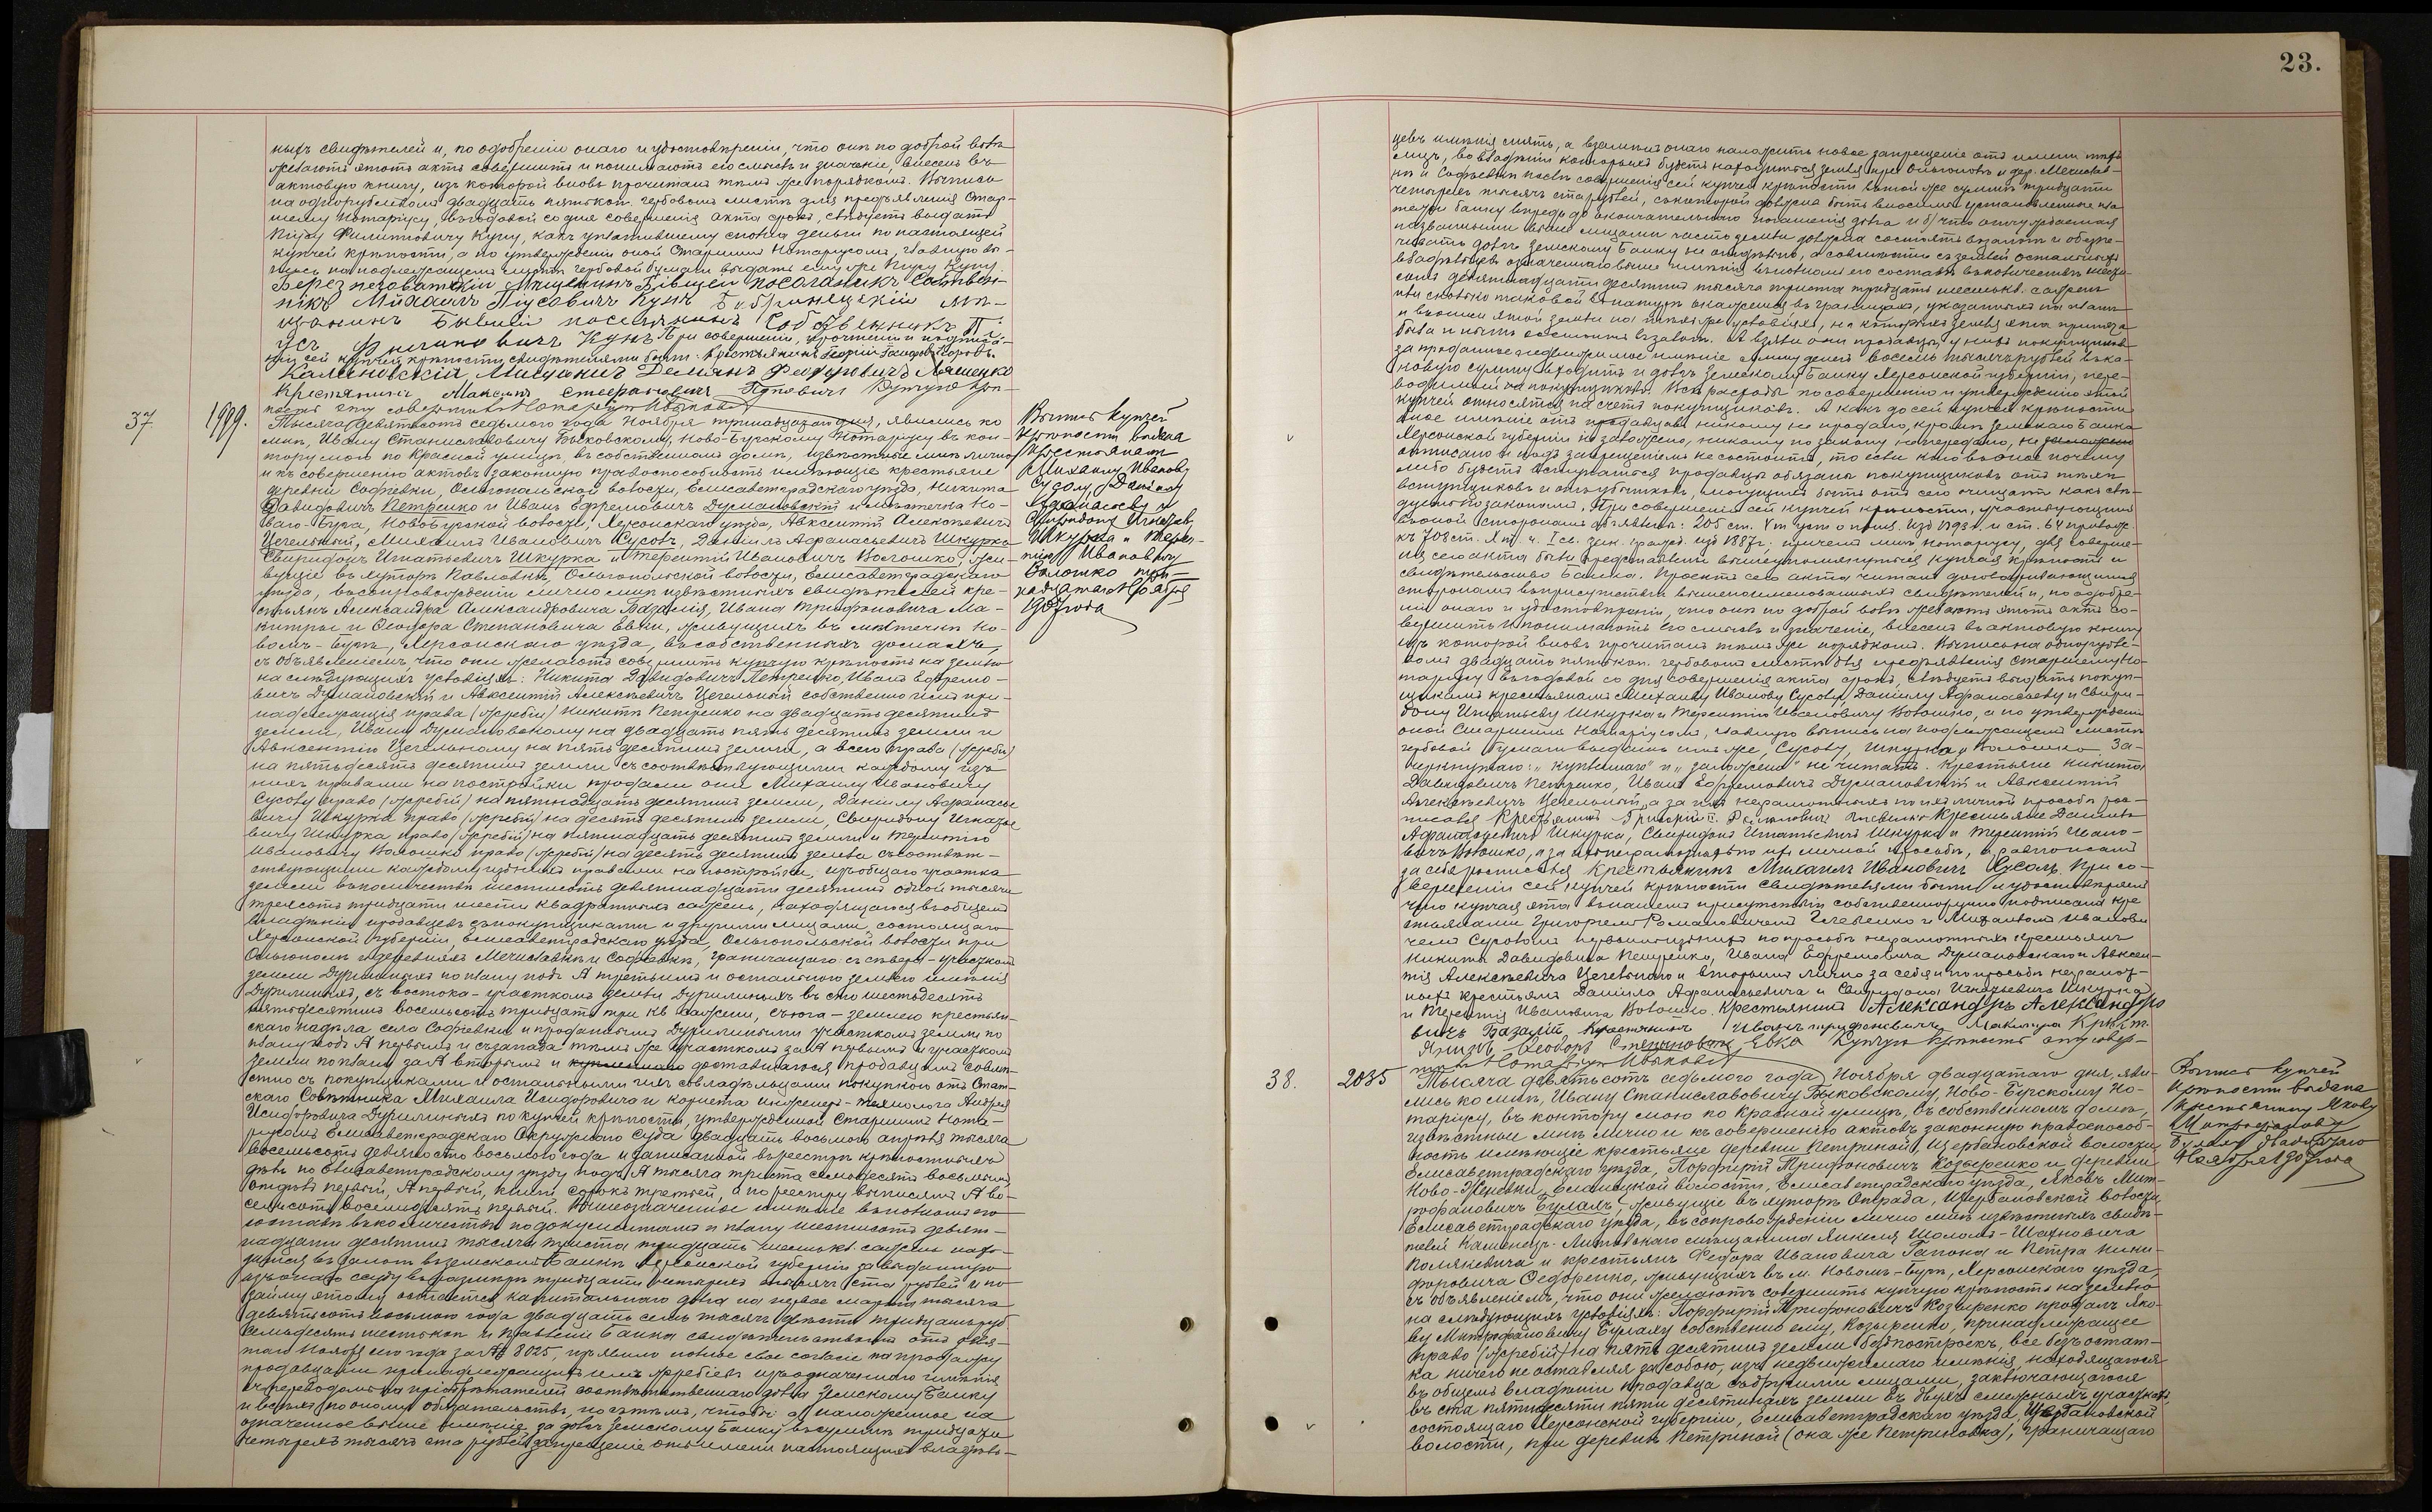 23.
ныхъ свидѣтелей и, по одобреніи онаго и удостовѣреніи, что они по доброй волѣ
желаютъ этотъ актъ совершить и понимаютъ его смыслъ и значеніе, внесенъ въ
актовую книгу, изъ которой вновь прочитанъ тѣмъ же порядкомъ. Выпись
на однорублевомъ двадцать пять коп. гербовомъ листѣ для предъявленія Стар-
шему Нотаріусу, въ годовой со дня совершенія акта срокъ, слѣдуетъ выдать
Піусу Филипповичу Куну, какъ уплатившему сполна деньги по настоящей
купчей крѣпости, а по утвержденіи оной Старшимъ Нотаріусомъ, главную вы-
пись на подлежащемъ листѣ гербовой бумаги выдать ему же Піусу Куну.
Березнеговатскій Мѣщанинъ Бывшей Собствен-
никъ Михаилъ Піусовичъ Кунъ Бобринецкій мѣ-
щанинъ Бывшій поселянинъ Собственникъ Пі-
усъ Филиповичъ Кунъ При совершеніи, прочтеніи и подписа-
ніи сей купчей крѣпости свидѣтелями были: Крестьянинъ Георгій
Мищанинъ Демьянъ Феодоровичъ Ляшенко
Крестянинъ Максимъ Стефановичъ Купчую крѣ-
пость эту совершилъ Нотаріусъ Быковскій
37 1989. Тысяча девятьсотъ седьмого года Ноября тринадцатаго дня, явились ко
мнѣ, Ивану Станиславовичу Быковскому, Ново-Бугскому Нотаріусу въ кон-
тору мою по Красной улицѣ, въ собственномъ домѣ, извѣстные мнѣ лично
и къ совершенію актовъ законную правоспособность имѣющіе крестьяне
деревни Софіевки, Ольгопольской волости, Елисаветградскаго уѣзда, Никита
Давидовичъ Петренко и Иванъ Ефремовичъ Думановскій и мѣстечка Но-
ваго-Буга, Новобугской волости, Херсонскаго уѣзда, Авксентій Алексѣевичъ
Цегельный, Михаилъ Ивановичъ Сусовъ, Даніилъ Афанасьевичъ Шкурка
Свиридонъ Игнатьевичъ Шкурка и Терентій Ивановичъ Волошко, жи-
вущіе въ хуторѣ Павловкѣ, Ольгопольской волости, Елисаветградскаго
уѣзда, въ сопровожденіи лично мнѣ извѣстныхъ свидѣтелей кре-
стьянъ Александра Александровича Базалія, Ивана Трифоновича Ма-
китры и Феодора Степановича Евки, живущихъ въ мѣстечкѣ Но-
вомъ-Бугѣ, Херсонскаго уѣзда, въ собственныхъ домахъ,
съ объявленіемъ, что они желаютъ совершить купчую крѣпость на землю
на слѣдующихъ условіяхъ: Никита Давидовичъ Петренко, Иванъ Ефремо-
вичъ Думановскій и Авксентій Алексѣевичъ Цегельный собственно имъ при-
надлежащія права (жребіи) Никитѣ Петренко на двадцать десятинъ
земли, Ивану Думановскому на двадцать пять десятинъ земли и
Авксентію Цегельному на пять десятинъ земли, а всего права (жребіи)
на пятьдесятъ десятинъ земли съ соотвѣтствующими каждому изъ
нихъ правами на постройки продали они Михаилу Ивановичу
Сусову право (жребій) на пятнадцать десятинъ земли, Даніилу Афанасье-
вичу Шкурка право (жребій) на десять десятинъ земли, Свиридону Игнатье-
вичу Шкурка право (жребій) на пятнадцать десятинъ земли и Терентію
Ивановичу Волошко право (жребій) на десять десятинъ земли съ соотвѣт-
ствующими каждому изъ нихъ правами на постройки, изъ общаго участка
земли въ количествѣ шестисотъ девятнадцати десятинъ одной тысячи
трехсотъ тридцати шести квадратныхъ сажень, находящагося въ общемъ
владѣніи продавцевъ съ покупщиками и другими лицами, состоящаго
Херсонской губерніи, Елисаветградскаго уѣзда, Ольгопольской волости при
Ольгополѣ и деревняхъ Мечиславкѣ и Софіевкѣ, граничащаго: съ сѣвера - участкомъ
земли Дурилиныхъ по плану подъ № третьимъ и остального землею имѣнія
Дурилиныхъ, съ востока - участкомъ земли Дурилиныхъ въ сто шестьдесятъ
десятинъ восемьсотъ тридцать три кв. сажени, съ юга - землею крестьян-
скаго надѣла села Софіевки и проданнымъ Дурилиными участкомъ земли по
плану подъ № первымъ и съ запада тѣмъ же участкомъ за № первымъ и участкомъ
земли по плану за № вторымъ и доставшагося продавцамъ совмѣ-
стно съ покупщиками и остальными ихъ совладѣльцами покупкою отъ Стат-
скаго Совѣтника Михаила Исидоровича и корнета инженеръ-технолога Андрея
Исидоровича Дурилиныхъ по купчей крѣпости, утвержденной Старшимъ Нота-
ріусомъ Елисаветградскаго Окружнаго Суда двадцать восьмого апрѣля тысяча
восемьсотъ девяносто восьмого года и записанной въ реестрѣ крѣпостныхъ
дѣлъ по Елисаветградскому уѣзду подъ № тысяча триста семьдесятъ восьмымъ
отдѣлъ первый, № первый, книги сорокъ третьей, а по реестру выписей № во-
семьсотъ восемьдесятъ первый. Вышеозначенное имѣніе въ полномъ его
составѣ въ количествѣ по документамъ и плану шестисотъ девят-
надцати десятинъ тысяча триста тридцать шесть кв. сажень нахо-
дится въ залогѣ въ земскомъ Банкѣ Херсонской губерніи за выданную
изъ онаго ссуду въ размѣрѣ тридцати четырехъ тысячъ ста рублей и по
займу этому остается капитальнаго долга на первое марта тысяча
девятьсотъ восьмого года двадцать семь тысячъ двѣсти тридцать руб.
семьдесятъ шесть коп. и Правленіе Банка свидѣтельствомъ отъ девя-
таго Ноября сего года за № 8025, изъявило полное свое согласіе на продажу
продавцами принадлежащихъ имъ жребіевъ изъ означеннаго имѣнія
съ переводомъ на пріобрѣтателей соотвѣтственнаго долга Земскому Банку
и всѣхъ по оному обязательствъ, но съ тѣмъ, чтобы: а) наложенное на
означенное выше имѣніе за долгъ Земскому Банку въ суммѣ тридцати
четырехъ тысячъ ста рублей запрещеніе отъ имени настоящихъ владѣль-
Выпись купчей
крѣпости выдана
Крестьянамъ
Михаилу Иванову
Сусову, Даніилу
Афанасьеву и
Свиридону Игнатьев.
Шкурка и Терен-
тію Ивановичу
Волошко три-
надцатаго Ноября
1907 года
цевъ имѣнія снять, а взамѣнъ онаго наложить новое запрещеніе отъ имени тѣхъ
лицъ, во владѣніи которыхъ будетъ находиться земля при Ольгополѣ и дер. Мечислав-
кѣ и Софіевкѣ послѣ совершенія сей купчей крѣпости въ той же суммѣ тридцати
четырехъ тысячъ ста рублей, съ которой должна быть вносима установленные пла-
тежи банку впредь до окончательнаго погашенія долга и б) что отчуждаемая
названными выше лицами часть земли должна состоять въ залогѣ и обезпе-
чивать долгъ земскому Банку не отдѣльно, а совмѣстно съ землей остальныхъ
владѣльцевъ означеннаго выше имѣнія въ полномъ его составѣ въ количествѣ шести-
сотъ девятнадцати десятинъ тысяча триста тридцать шесть кв. сажень
или сколько таковой въ натурѣ окажется въ границахъ, указанныхъ на планѣ
и вносимъ этой земли на тѣхъ же условіяхъ, на которыхъ земля эта принята
была и нынѣ состоитъ въ залогѣ. А взяли они продавцы у нихъ покупщиковъ
за проданное недвижимое имѣніе сумму денегъ восемь тысячъ рублей въ ка-
ковую сумму входитъ и долгъ Земскому Банку Херсонской губерніи, пере-
водимый на покупщиковъ. Всѣ расходы по совершенію и утвержденію этой
купчей относятся на счетъ покупщиковъ. А какъ до сей купчей крѣпости
оное имѣніе отъ продавцевъ никому не продано, кромѣ Земскаго Банка
Херсонской губерніи не заложено, никому по закону не передано, не заложено
отписано и подъ запрещеніемъ не состоитъ, то если кто въ оное почему
либо будетъ вступаться продавцы обязаны покупщиковъ отъ тѣхъ
вступщиковъ и отъ убытковъ, могущихъ быть отъ сего очищать какъ слѣ-
дуетъ по законамъ. При совершеніи сей купчей крѣпости, участвующимъ
въ оной сторонамъ объявлены: 205 ст. V т. уст. о пошл. изд. 1893 г. и ст. 64 прилож.
къ 708 ст. X т. ч. I св. зак. гражд. изд. 1887 г., причемъ мнѣ Нотаріусу, для соверше-
нія сего акта были представлены вышеупомянутыя купчая крѣпость и
свидѣтельство Банка. Проектъ сего акта читанъ договаривающимся
сторонамъ въ присутствіи вышепоименованныхъ свидѣтелей и, по одобре-
ніи онаго и удостовѣреніи, что они по доброй волѣ желаютъ этотъ актъ со-
вершить и понимаютъ его смыслъ и значеніе, внесенъ въ актовую книгу
изъ которой вновь прочитанъ тѣмъ же порядкомъ. Выпись на однорубле-
вомъ двадцать пять коп. гербовомъ листѣ для предъявленія Старшему Но-
таріусу въ годовой со дня совершенія акта срокъ, слѣдуетъ выдать покуп-
щикамъ крестьянамъ Михаилу Иванову Сусову, Даніилу Афанасьеву и Свири-
дону Игнатьеву Шкурка и Терентію Ивановичу Волошко, а по утвержденіи
оной Старшимъ Нотаріусомъ, главную выпись на подлежащемъ листѣ
гербовой бумаги выдать имъ же, Сусову, Шкурка и Волошко. За-
черкнутаго: „купленнаго" и „заложено" не читать. Крестьяне Никита
Давидовичъ Петренко, Иванъ Ефремовичъ Думановскій и Авксентій
Алексѣевичъ Цегельный, а за нихъ неграмотныхъ по ихъ личной просьбѣ рос-
писался Крестьянинъ Григорій Крестьяне Даніилъ
Афанасьевичъ Шкурка, Свиридонъ Игнатьевичъ Шкурка и Терентій Ивано-
вичъ Волошко, а за нихъ неграмотныхъ по ихъ личной просьбѣ, а равно и самъ
за себя росписался Крестьянинъ Михаилъ Ивановичъ Сусолъ. При со-
вершеніи сей купчей крѣпости свидѣтелями были и удостовѣряемъ
что купчая эта въ нашемъ присутствіи собственноручно подписана кре-
стьянами Григоріемъ Романовичемъ и Михаиломъ Иванови-
чемъ Сусовымъ первымъ изъ нихъ по просьбѣ неграмотныхъ крестьянъ
Никиты Давидовича Петренко, Ивана Ефремовича Думановскаго и Авксен-
тія Алексѣевича Цегельнаго и вторымъ лично за себя и по просьбѣ неграмот-
ныхъ крестьянъ Даніила Афанасьевича и Свиридона Игнатьевича Шкурка
и Терентія Ивановича Волошко. Крестьянинъ Александръ Александро
вичъ Базалій, Крестянинъ Иванъ Трифоновичъ Макитра Крест.
янинъ Ѳеодоръ Степановичъ Евка Купчую крѣпость эту совер-
шилъ Нотаріусъ Быковскій
38. 2035 Тысяча девятьсотъ седьмого года Ноября двадцатаго дня, яви-
лись ко мнѣ, Ивану Станиславовичу Быковскому, Ново-Бугскому Но-
таріусу, въ контору мою по Красной улицѣ, въ собственномъ домѣ,
извѣстные мнѣ лично и къ совершенію актовъ законную правоспособ-
ность имѣющіе крестьяне деревни Петриной, Щербановской волости
Елисаветградскаго уѣзда, Порфирій Трифоновичъ Козыренко и деревни
Ново-Жеревки, Еланецкой волости, Елисаветградскаго уѣзда, Яковъ Мит-
рофановичъ Булахъ, живущіе въ хуторѣ Отрада, Щербановской волости
Елисаветградскаго уѣзда, въ сопровожденіи лично мнѣ извѣстныхъ свидѣ-
телей Каменецъ-Литовскаго мѣщанина Янкеля Шолома-Шахновича
Полякевича и крестьянъ Федора Ивановича Гапона и Петра Ники-
форовича Федоренко, живущихъ въ м. Новомъ-Бугѣ, Херсонскаго уѣзда
съ объявленіемъ, что они желаютъ совершить купчую крѣпость на землю
на слѣдующихъ условіяхъ: Порфирій Трифоновичъ Козыренко продалъ Яко-
ву Митрофановичу Булаху собственно ему, Козыренко, принадлежащее
право (жребій) на пять десятинъ земли безъ построекъ, все безъ остат-
ка ничего не оставляя за собою, изъ недвижимаго имѣнія, находящагося
въ общемъ владѣніи продавца съ другими лицами, заключающагося
въ ста пятидесяти пяти десятинахъ земли въ двухъ смежныхъ участкахъ,
состоящаго Херсонской губерніи, Елисаветградскаго уѣзда, Щербановской
волости, при деревнѣ Петриной (она же Петриновка), граничащаго
Выпись купчей
крѣпости выдана
крестьянину Якову
Митрофанову
Булаху двадцатаго
Ноября 1907 года